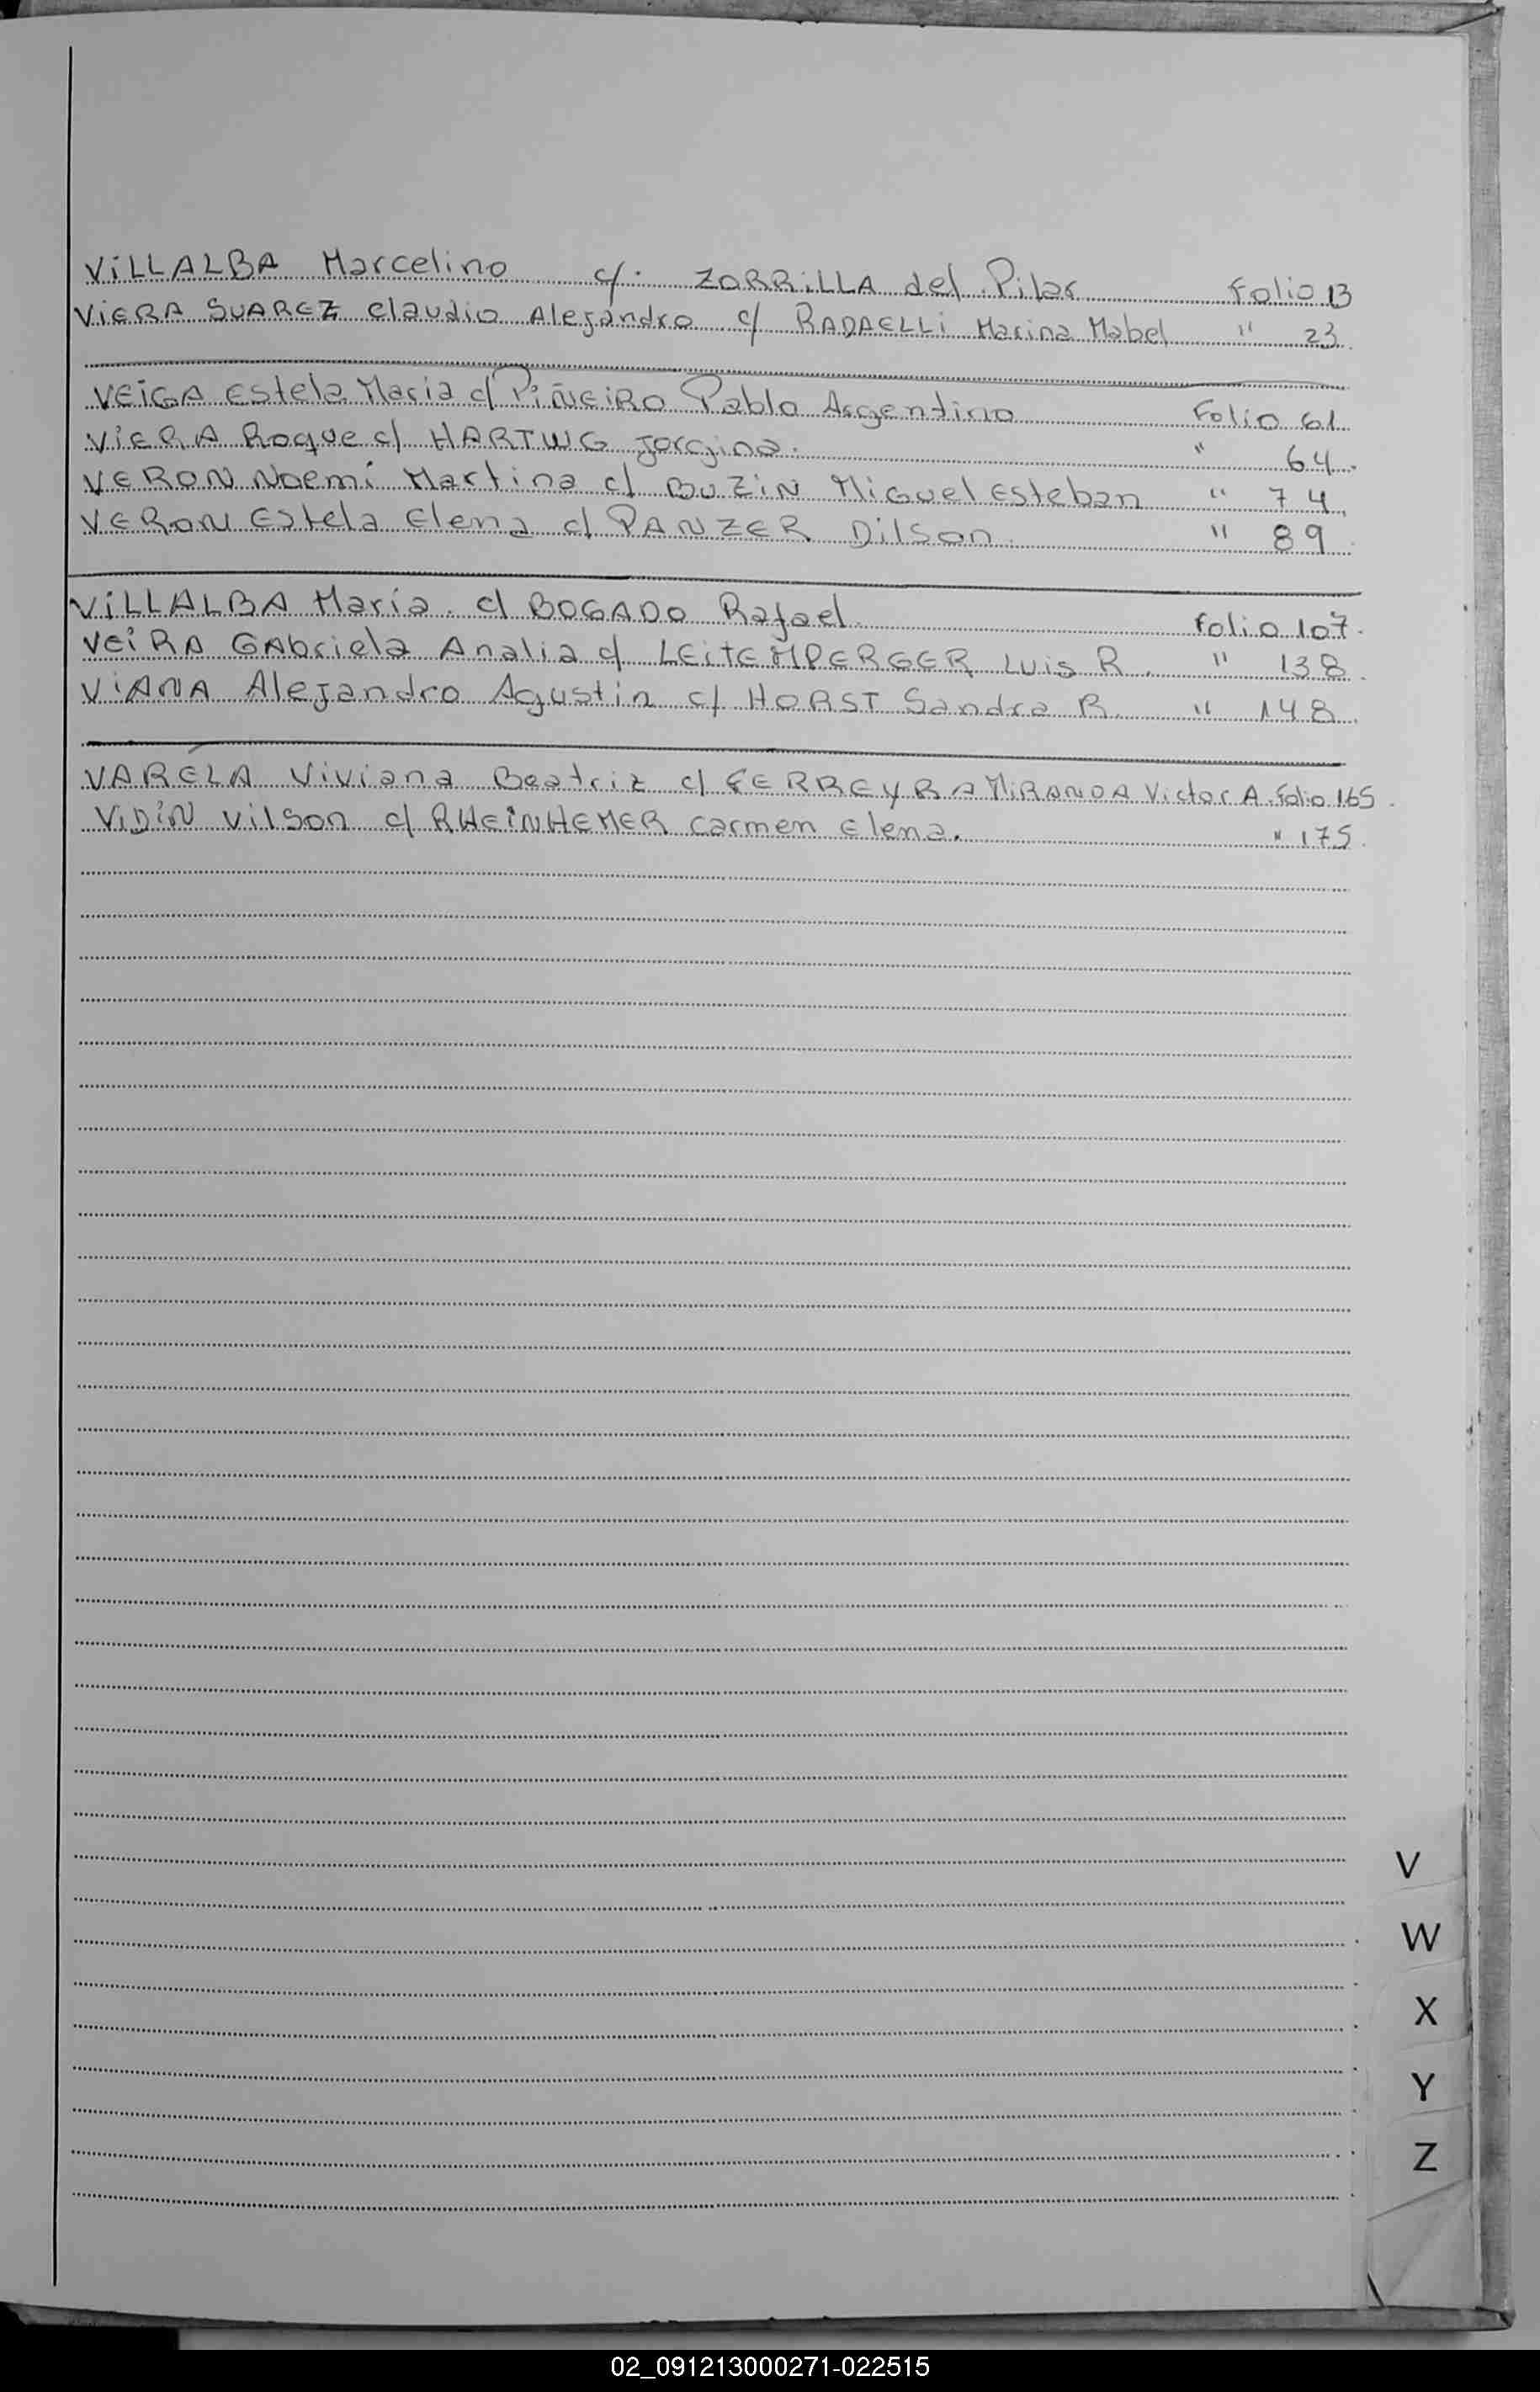 ViLLALBA Marcelino c/. ZORRiLLA del Pilar Folio 13
ViERA SUAREZ Claudio Alejandro c/ RADAELLi Marina Mabel " 23
VEiGA Estela Maria c/ PiÑEiRO Pablo Argentino Folio 61
ViERA Roque c/ HARTWIG Jorgina. " 64
VERON Noemi Martina c/ BUZiN MiGuel Esteban " 74
VERON Estela Elena c/ PANZER Dilson " 89
ViLLALBA María c/ BOGADO Rafael Folio 107
VEiRA GAbriela Analia c/ LEiTEMPERGER Luis R. " 138
ViANA Alejandro Agustin c/ HORST Sandra R. " 148
VARELA Viviana Beatriz c/ FERREYRA MiRANDA Victor A. Folio 165
ViDiN Vilson c/ RHEiNHEMER Carmen Elena. " 175
V
W
X
Y
Z
02_091213000271-022515